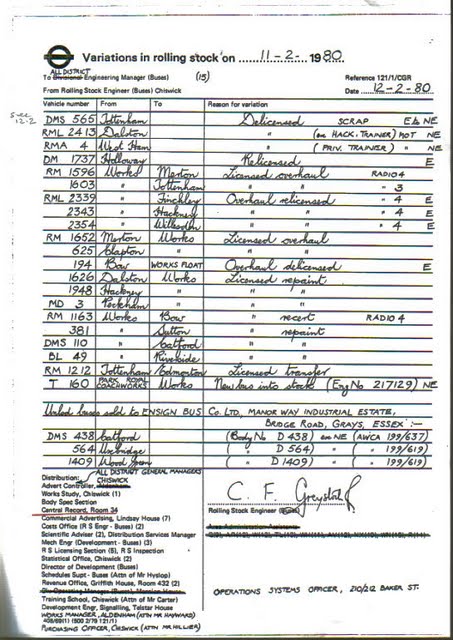 Variations in rolling stock on 11-2- 1980
ALL DISTRICT
To Divisional Engineering Manager (Buses) (15) Reference 121/1/CGR
From Rolling Stock Engineer (Buses) Chiswick Date 12-2-80
Vehicle number From To Reason for variation
12-2
DMS 565 Tottenham Delicensed SCRAP E to NE
RML 2413 Dalston " (on HACK. TRAINER) NOT NE
RMA 4 West Ham " (PRIV. TRAINER) " NE
DM 1737 Holloway Relicensed E
RM 1596 Works Merton Licensed overhaul RADIO 4
1603 " Tottenham " " " 3
RML 2339 " Finchley Overhaul relicensed " 4 E
2343 " Hackney " " " 4 E
2354 " Willesden " " " 4 E
RM 1652 Merton Works Licensed overhaul
625 Clapton " " "
194 Bow WORKS FLOAT Overhaul delicensed E
1626 Dalston Works Licensed repaint
1948 Hackney " " "
MD 3 Peckham " " "
RM 1163 Works Bow " recert RADIO 4
381 " Sutton " repaint
DMS 110 " Catford " "
BL 49 " Riverside " "
RM 1212 Tottenham Edmonton Licensed transfer
T 160 PARK ROYAL COACHWORKS Works New bus into stock (Eng No 217129) NE
Unlicd buses sold to ENSIGN BUS Co. LTD, MANOR WAY INDUSTRIAL ESTATE,
BRIDGE ROAD, GRAYS, ESSEX :-
DMS 438 Catford (Body No D 438) ex NE (AWCA 199/637)
564 Uxbridge ( " D 564) " ( " 199/619)
1409 Wood Green ( " D 1409) " ( " 199/619)
ALL DISTRICT GENERAL MANAGERS
Distribution: CHISWICK
Advert Controller, Aldenham
Works Study, Chiswick (1)
Body Spec Section
Central Record, Room 34
Commercial Advertising, Lindsay House (7)
Costs Office (R S Engr - Buses) (2)
Scientific Adviser (2), Distribution Services Manager
Mech Engr (Development - Buses) (3)
R S Licensing Section (B), R S Inspection
Statistical Office, Chiswick (2)
Director of Development (Buses)
Schedules Supt - Buses (Attn of Mr Hyslop)
Revenue Office, Griffith House, Room 432 (2)
Training School, Chiswick (Attn of Mr Carter)
Development Engr, Signalling, Telstar House
WORKS MANAGER, ALDENHAM (ATTN MR HAYWARD)
PURCHASING OFFICER, CHISWICK (ATTN MR HILLIER)
C. F.
Rolling Stock Engineer (Buses)
Area Administration Assistants
OPERATIONS SYSTEMS OFFICER, 210/212 BAKER ST.